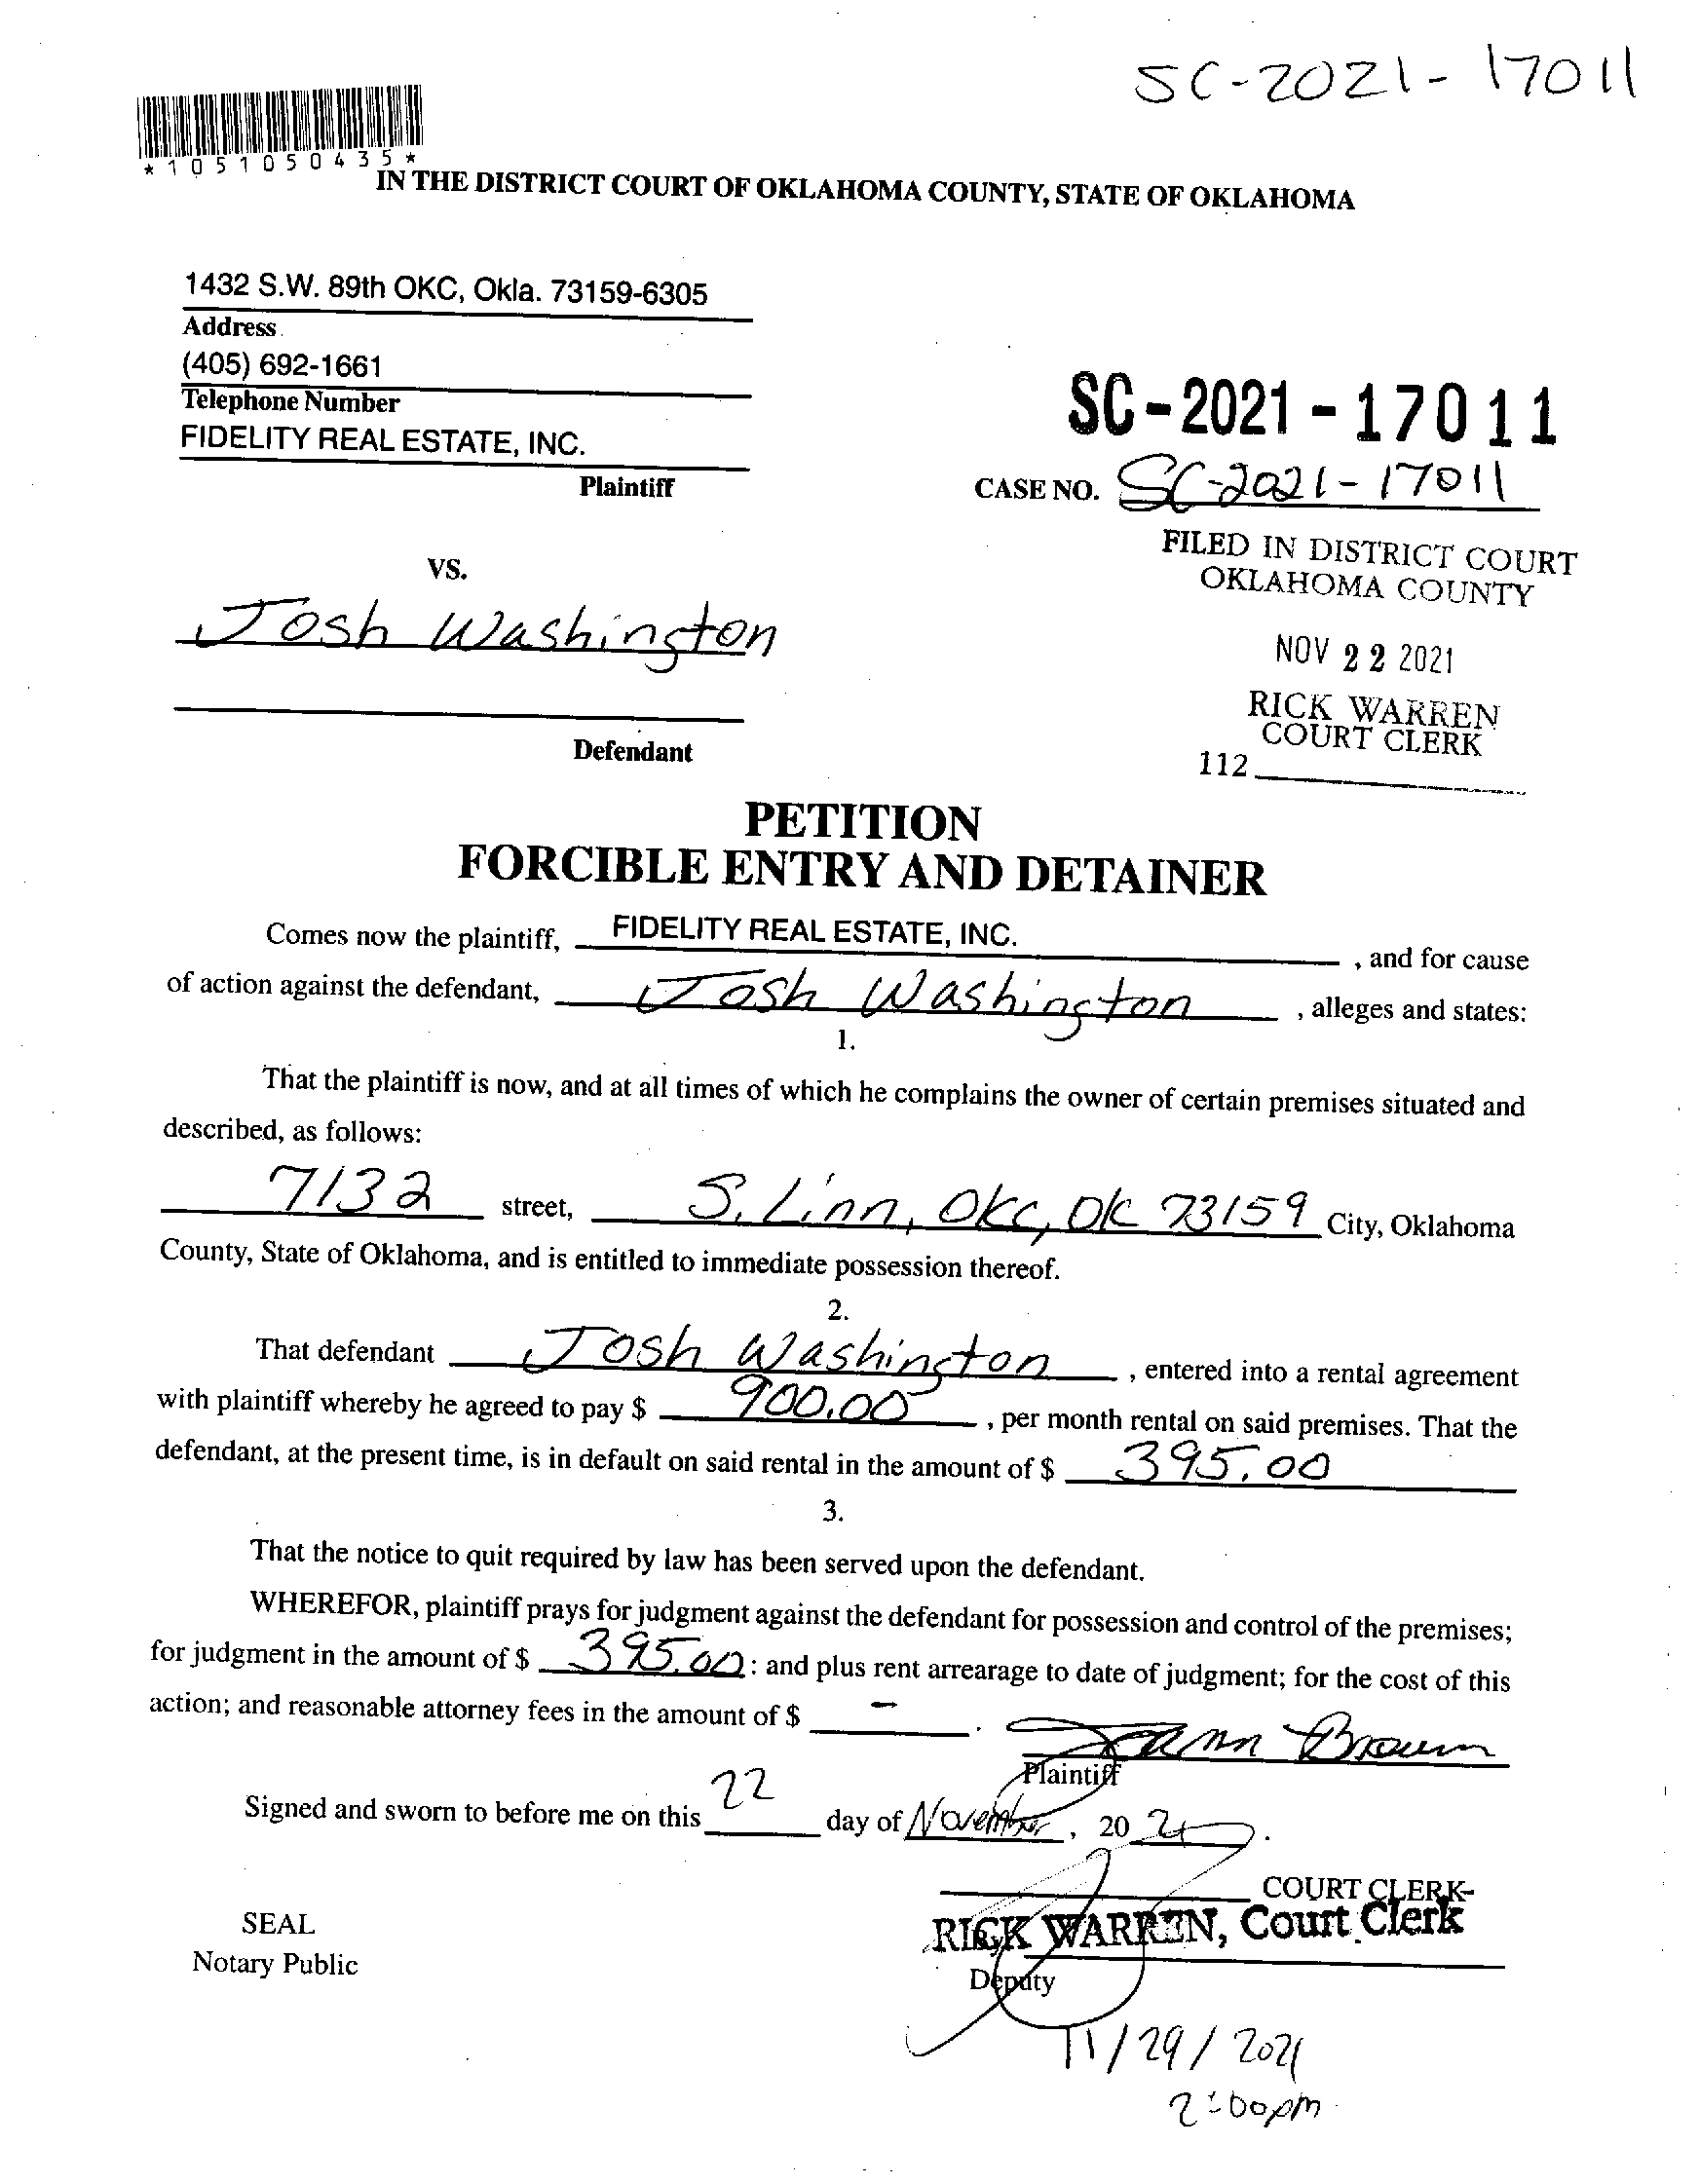 SC-2021-17011
*1051050435*
IN THE DISTRICT COURT OF OKLAHOMA COUNTY, STATE OF OKLAHOMA
1432 S.W. 89th OKC, Okla. 73159-6305
Address
(405) 692-1661
Telephone Number
FIDELITY REAL ESTATE, INC.
Plaintiff
SC-2021-17011
CASE NO. SC-2021-17011
FILED IN DISTRICT COURT
OKLAHOMA COUNTY
VS.
Josh Washington
NOV 22 2021
RICK WARREN
COURT CLERK
Defendant
112
PETITION
FORCIBLE ENTRY AND DETAINER
Comes now the plaintiff, FIDELITY REAL ESTATE, INC. , and for cause
of action against the defendant, Josh Washington , alleges and states:
1.
That the plaintiff is now, and at all times of which he complains the owner of certain premises situated and
described, as follows:
7132 street, S. Linn, OKC, OK 73159 City, Oklahoma
County, State of Oklahoma, and is entitled to immediate possession thereof.
2.
That defendant Josh Washington , entered into a rental agreement
with plaintiff whereby he agreed to pay $ 900.00 , per month rental on said premises. That the
defendant, at the present time, is in default on said rental in the amount of $ 395.00
3.
That the notice to quit required by law has been served upon the defendant.
WHEREFOR, plaintiff prays for judgment against the defendant for possession and control of the premises;
for judgment in the amount of $ 395.00: and plus rent arrearage to date of judgment; for the cost of this
action; and reasonable attorney fees in the amount of $ - .
Joann Brown
Plaintiff
Signed and sworn to before me on this 22 day of November, 20 21.
COURT CLERK-
SEAL
RICK WARREN, Court Clerk
Notary Public
Deputy
11/29/2021
2:00pm